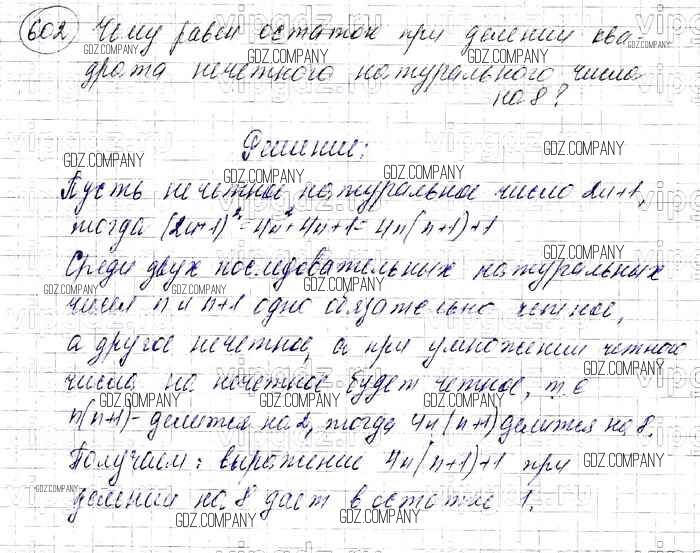 602 Чему равен остаток при делении ква-
драта нечетного натурального числа
на 8?
Решение:
Пусть нечетное натуральное число 2n+1,
тогда (2n+1)²=4n²+4n+1=4n(n+1)+1
Среди двух последовательных натуральных
чисел n и n+1 одно обязательно четное,
а другое нечетное, а при умножении четного
числа на нечетное будет четное, т.е
n(n+1)- делится на 2, тогда 4n(n+1) делится на 8.
Получаем: выражение 4n(n+1)+1 при
делении на 8 дает в остатке 1.
GDZ.COMPANY
vipgdz.ru